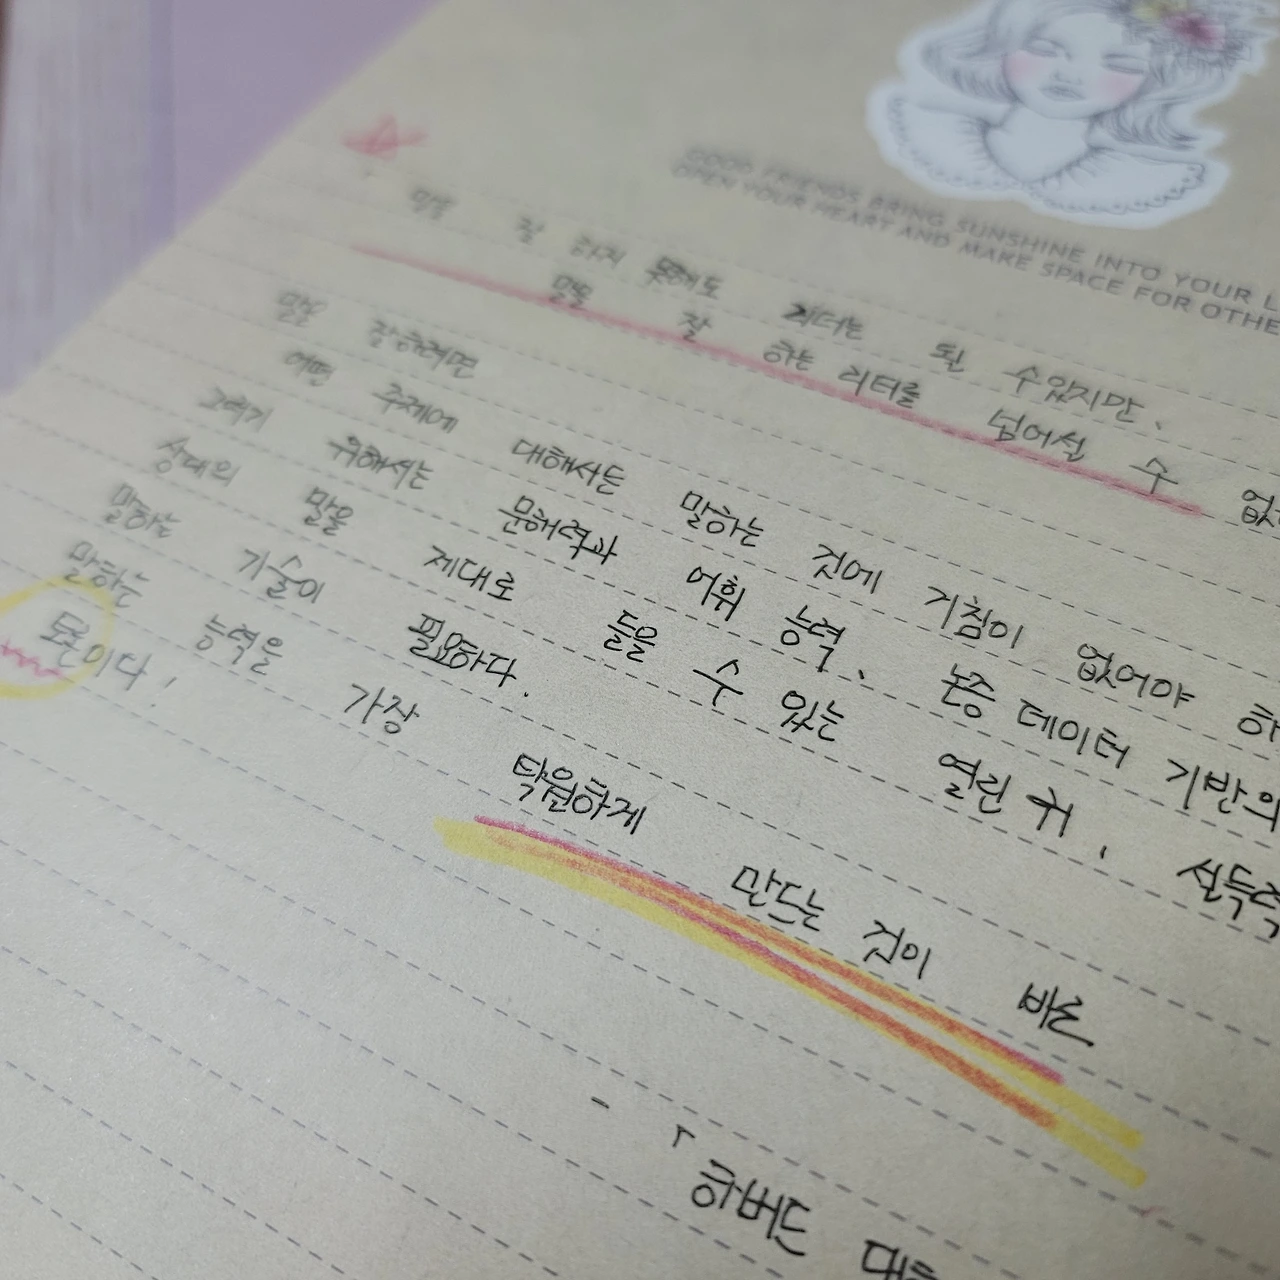 GOOD FRIENDS BRING SUNSHINE INTO YOUR L
OPEN YOUR HEART AND MAKE SPACE FOR OTHE
말을 잘 하지 못해도 리더는 될 수 있지만,
말을 잘 하는 리더를 넘어설 수 없
말을 잘하려면
어떤 주제에 대해서든 말하는 것에 거침이 없어야 하
그러기 위해서는 문해력과 어휘 능력, 논증 데이터 기반의
상대의 말을 제대로 들을 수 있는 열린 귀, 설득력
말하는 기술이 필요하다.
말하는 능력을 가장 탁월하게 만드는 것이 바로
토론이다!
- 「하버드 대